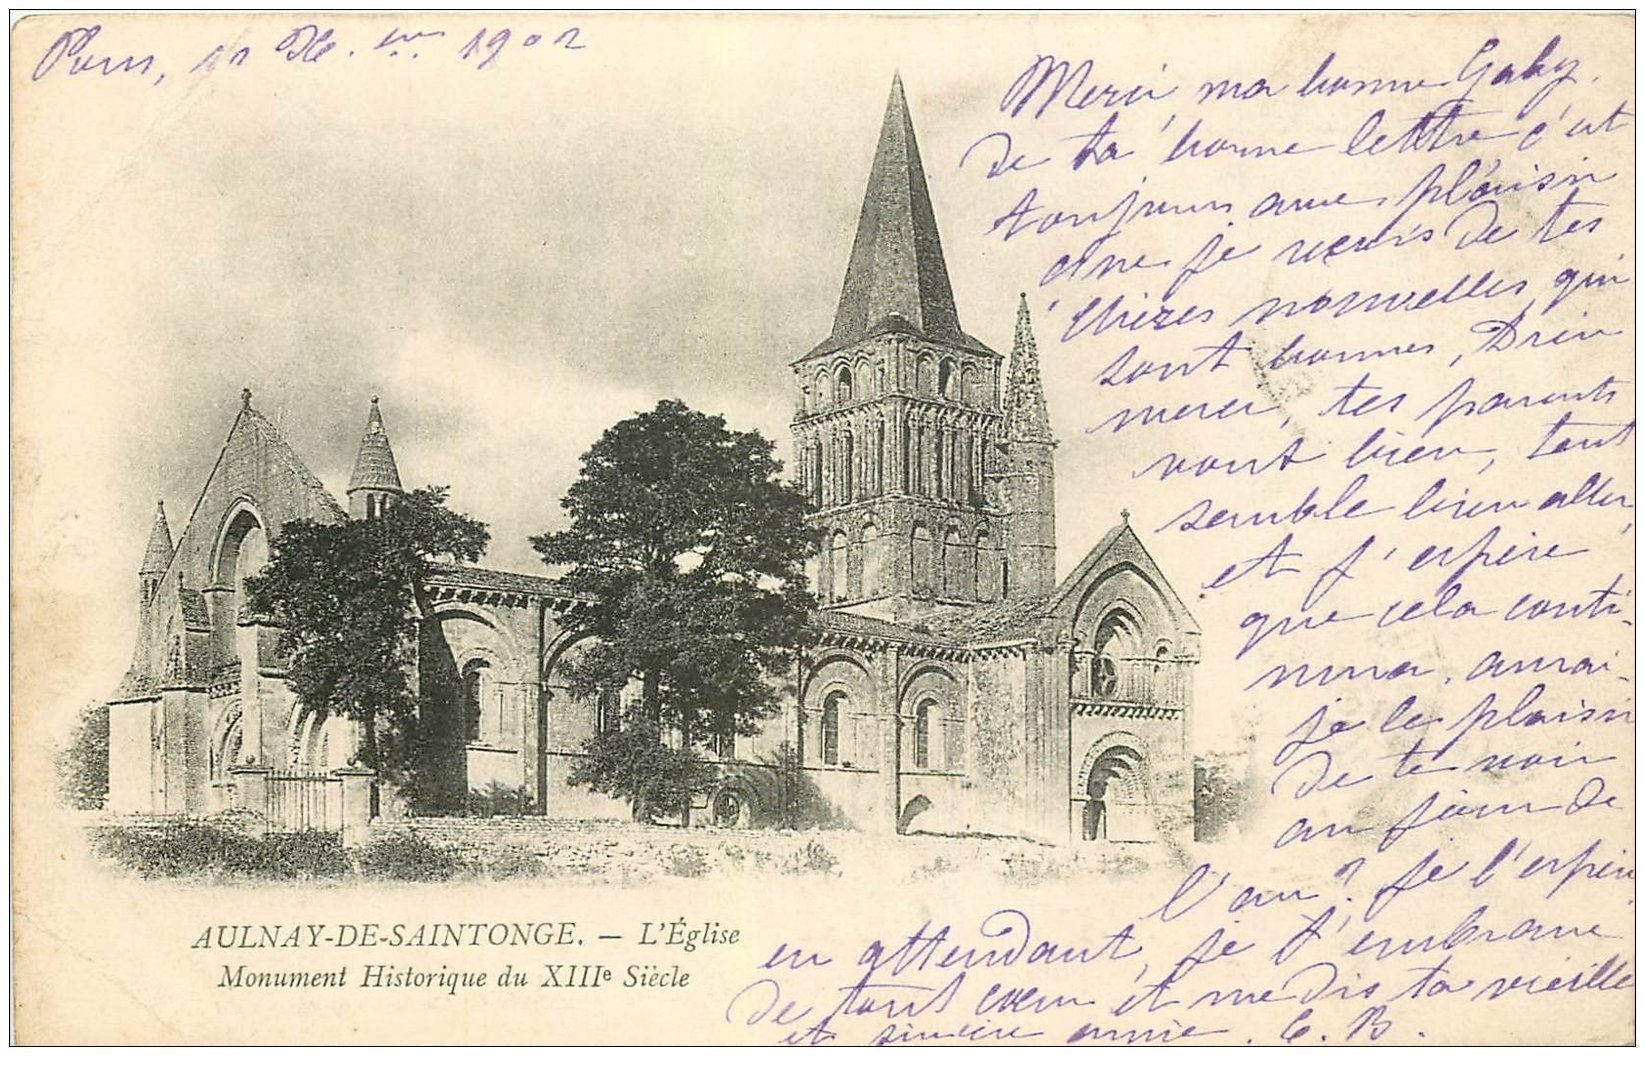 Paris, 11 Xbre 1902
Merci, ma bonne Gaby,
de ta bonne lettre c'est
toujours avec plaisir
que je reçois de tes
chères nouvelles, qui
sont bonnes, Dieu
merci, tes parents
vont bien, tout
semble bien aller,
et j'espère
que cela conti-
nuera. aurai-
je le plaisir
de te voir
au jour de
l'an? je l'espère
en attendant, je t'embrasse
de tout cœur et me dis ta vieille
et sincère amie. C. B.
AULNAY-DE-SAINTONGE. — L'Église
Monument Historique du XIIIe Siècle